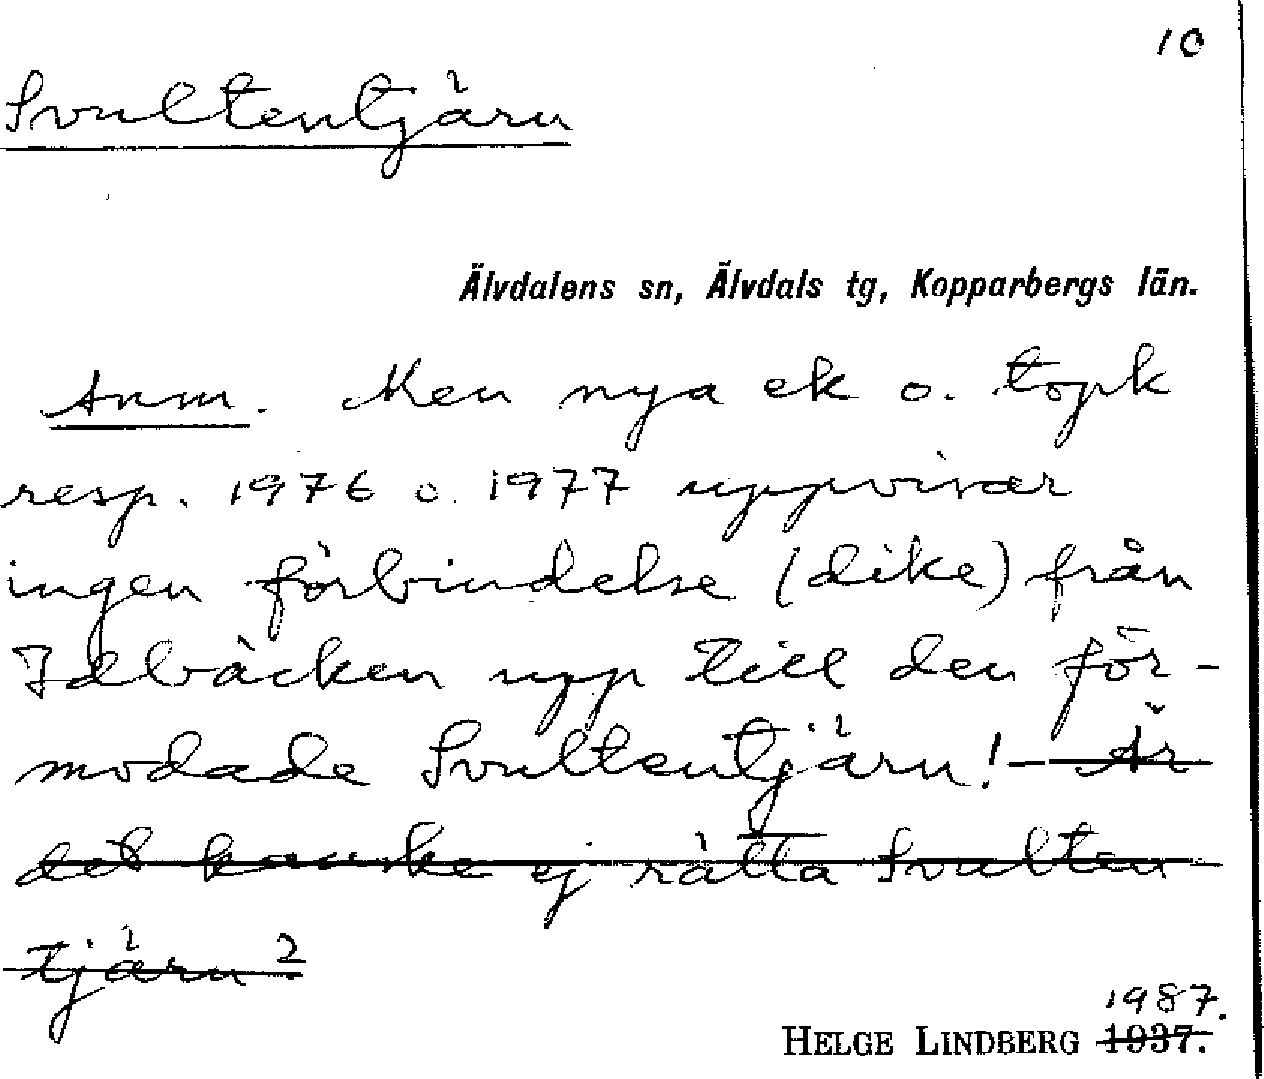 10
Svultentjärn
Älvdalens sn, Älvdals tg, Kopparbergs län.
Anm. Men nya ek o. topk
resp. 1976 o. 1977 uppvisar
ingen förbindelse (dike) från
Idbäcken upp till den för-
modade Svultentjärn! – Är
det kanske ej rätta Svulten
tjärn?
1987.
HELGE LINDBERG 1937.